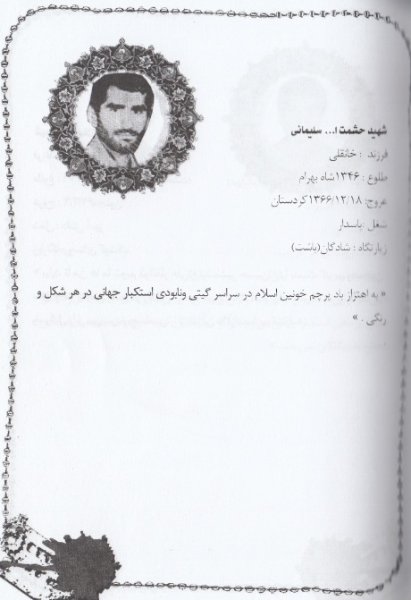 شهید حشمت ا... سلیمانی
فرزند : خانقلی
طلوع : ۱۳۴۶شاه بهرام
عروج: ۱۳۶۶/۱۲/۱۸کردستان
شغل :پاسدار
زیارتگاه : شادگان(باشت)
« به اهتزاز باد پرچم خونین اسلام در سراسر گیتی ونابودی استکبار جهانی در هر شکل و
رنگی . »